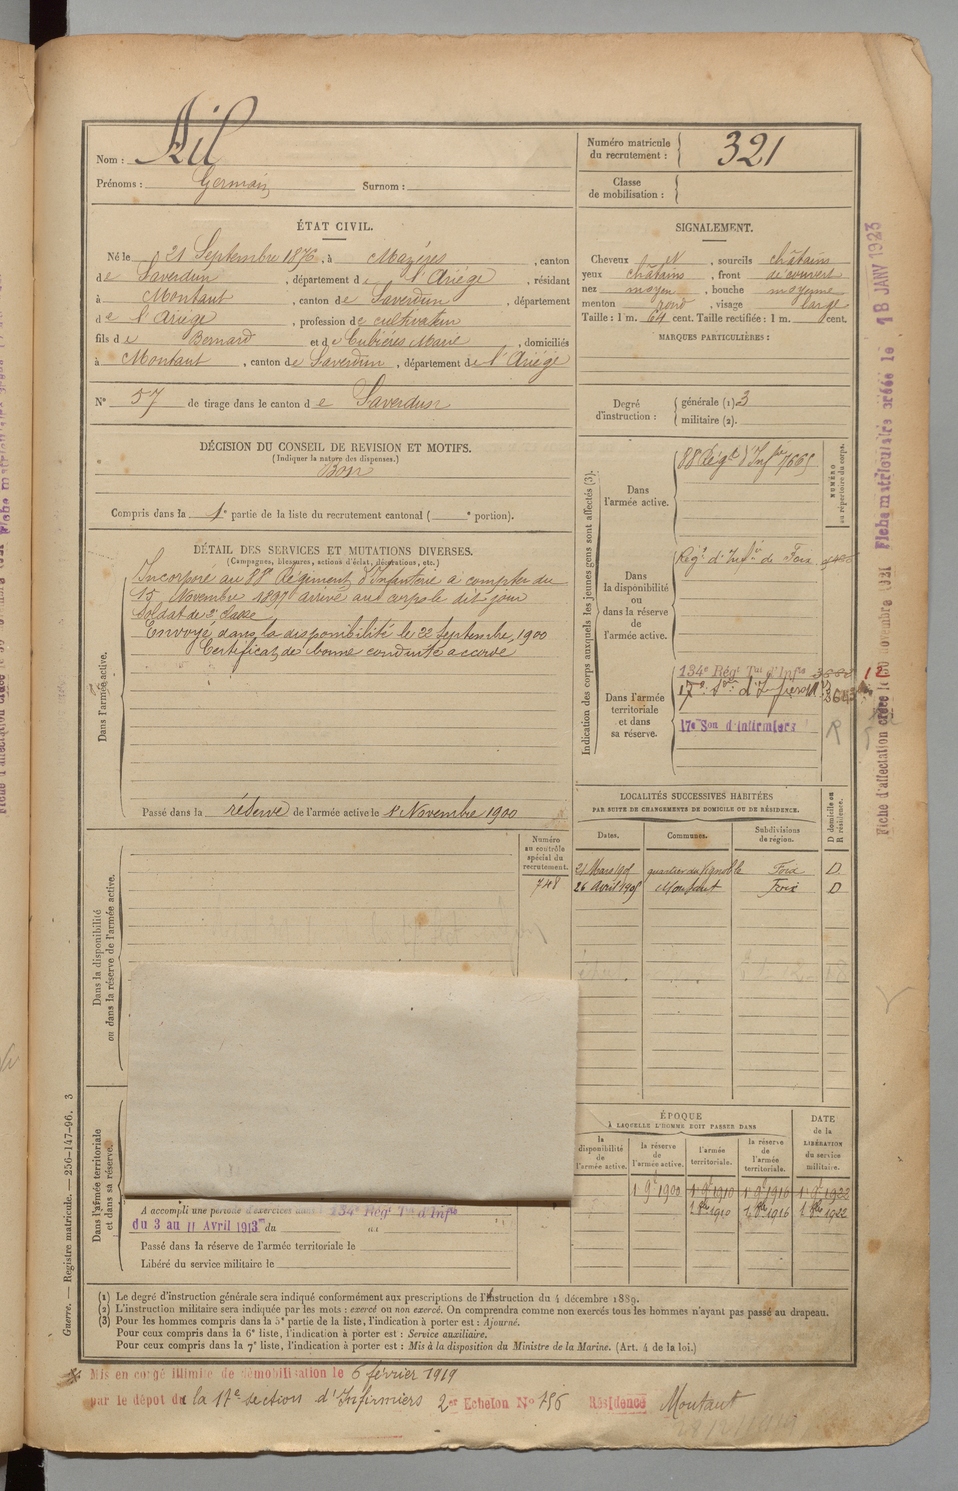 Nom : Ril
Prénoms : Germain Surnom :
Numéro matricule du recrutement : 321
Classe de mobilisation :
ÉTAT CIVIL.
Né le 21 Septembre 1876, à Mazères, canton
de Saverdun, département de l'Ariège, résidant
à Montaut, canton de Saverdun, département
de l'Ariège, profession de cultivateur
fils de Bernard et de Cubières Marie, domiciliés
à Montaut, canton de Saverdun, département de l'Ariège
N° 57 de tirage dans le canton de Saverdun
SIGNALEMENT.
Cheveux et, sourcils châtains
yeux châtains, front découvert
nez moyen, bouche moyenne
menton rond, visage large
Taille : 1 m. 64 cent. Taille rectifiée : 1 m. cent.
MARQUES PARTICULIÈRES :
Degré d'instruction : générale (1) 3
militaire (2).
DÉCISION DU CONSEIL DE REVISION ET MOTIFS.
(Indiquer la nature des dispenses.)
Bon
Compris dans la 1e partie de la liste du recrutement cantonal ( e portion).
DÉTAIL DES SERVICES ET MUTATIONS DIVERSES.
(Campagnes, blessures, actions d'éclat, décorations, etc.)
Dans l'armée active.
Incorporé au 88e Régiment d'Infanterie à compter du
15 Novembre 1897 arrivé au corps le dit jour
Soldat de 2e classe
Envoyé dans la disponibilité le 22 Septembre 1900
Certificat de bonne conduite accordé
Passé dans la réserve de l'armée active le 1r Novembre 1900
Indication des corps auxquels les jeunes gens sont affectés (3).
NUMÉRO au répertoire du corps.
Dans l'armée active.
88 Régt d'Infie 7665
Dans la disponibilité ou dans la réserve de l'armée active.
Régt d'Infie de Foix
Dans l'armée territoriale et dans sa réserve.
134e Régt Tal d'Infie
17e Son d'infirmiers
R
LOCALITÉS SUCCESSIVES HABITÉES
PAR SUITE DE CHANGEMENTS DE DOMICILE OU DE RÉSIDENCE.
Dates. Communes. Subdivisions de région. D domicile ou R résidence.
21 Mars 1901 quartier du Vignoble Foix D
26 Avril 1908 Montaut Foix D
Numéro au contrôle spécial du recrutement.
748
Dans la disponibilité ou dans la réserve de l'armée active.
Dans l'armée territoriale et dans sa réserve.
ÉPOQUE
À LAQUELLE L'HOMME DOIT PASSER DANS
la disponibilité de l'armée active. la réserve de l'armée active. l'armée territoriale. la réserve de l'armée territoriale. DATE de la LIBÉRATION du service militaire.
1 9e 1900 1 9e 1910 1 9e 1916 1 9e 1922
1 8bre 1910 1 8bre 1916 1 8bre 1922
A accompli une période d'exercices dans l 134e Régt Tal d'Infie
du 3 au 11 Avril 1913 du au
Passé dans la réserve de l'armée territoriale le
Libéré du service militaire le
(1) Le degré d'instruction générale sera indiqué conformément aux prescriptions de l'Instruction du 4 décembre 1889.
(2) L'instruction militaire sera indiquée par les mots : exercé ou non exercé. On comprendra comme non exercés tous les hommes n'ayant pas passé au drapeau.
(3) Pour les hommes compris dans la 5e partie de la liste, l'indication à porter est : Ajourné.
Pour ceux compris dans la 6e liste, l'indication à porter est : Service auxiliaire.
Pour ceux compris dans la 7e liste, l'indication à porter est : Mis à la disposition du Ministre de la Marine. (Art. 4 de la loi.)
Guerre. — Registre matricule. — 256-147-96. 3
Mis en congé illimité de démobilisation le 6 février 1919
par le dépôt de la 17e section d'Infirmiers 2er Echelon N° 756 Résidence Montaut
Fiche d'affectation créée le novembre 1921 Fiche matriculaire créée le 18 JANV 1923